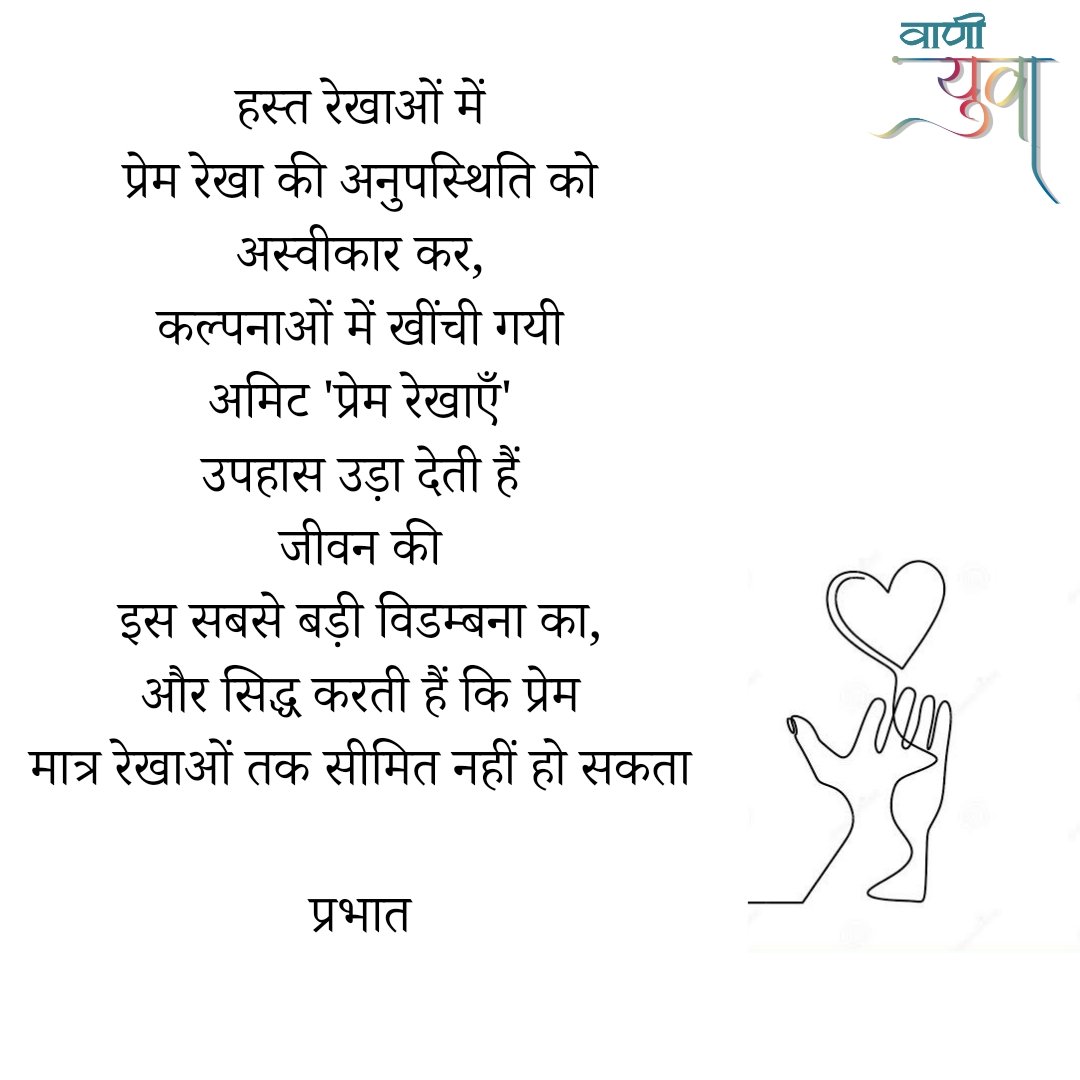 वाणी
युवा
हस्त रेखाओं में
प्रेम रेखा की अनुपस्थिति को
अस्वीकार कर,
कल्पनाओं में खींची गयी
अमिट 'प्रेम रेखाएँ'
उपहास उड़ा देती हैं
जीवन की
इस सबसे बड़ी विडम्बना का,
और सिद्ध करती हैं कि प्रेम
मात्र रेखाओं तक सीमित नहीं हो सकता
प्रभात